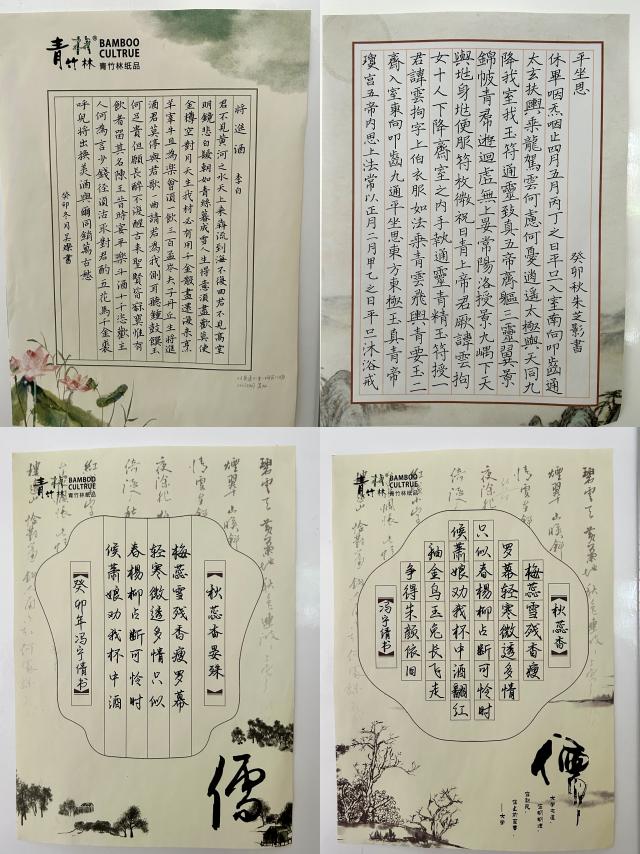 青竹林®
BAMBOO
CULTRUE
青竹林纸品
將進酒 李白
君不見黃河之水天上來奔流到海不復回君不見高堂
明鏡悲白髮朝如青絲暮成雪人生得意須盡歡莫使
金樽空對月天生我材必有用千金散盡還復來烹
羊宰牛且為樂會須一飲三百杯岑夫子丹丘生將進
酒君莫停與君歌一曲請君為我側耳聽鐘鼓饌玉
何足貴但願長醉不復醒古來聖賢皆寂寞惟有
飲者留其名陳王昔時宴平樂斗酒十千恣歡主
人何為言少錢徑須沽取對君酌五花馬千金裘
呼兒將出換美酒與爾同銷萬古愁
癸卯冬月吳璨書
瓊宮五帝內思上法常以正月二月甲乙之日平旦沐浴戒
齋入室東向叩齒九通平坐思東方東極玉真青帝
君諱雲拘字上伯衣服如法乘青雲飛輿青要玉二
女十人下降齋室之內手執通靈青精玉符授一
與地身地便服符枚微祝日青上帝君厥諱雲拘
錦帔青君遊迴虛無上晏常陽洛授景九嵎下天
降我室找玉符通靈致真五帝齋軀三靈翼景
太玄扶輿乘龍駕雲何慮何憂逍遙太極與天同九
休畢咽炁咽止四月五月丙丁之日平旦入室南向叩齒通
平坐思
癸卯秋朱芝影書
青竹林
BAMBOO
CULTRUE
青竹林纸品
【秋蕊香晏殊】
梅蕊雪残香瘦罗幕
轻寒微透多情只似
春杨柳占断可怜时
候萧娘劝我杯中酒
【癸卯年冯宇倩书】
儒
青竹林
BAMBOO
CULTRUE
青竹林纸品
【秋蕊香】
梅蕊雪残香瘦
罗幕轻寒微透多情
只似春杨柳占断可怜时
候萧娘劝我杯中酒翻红
袖金乌玉兔长飞走
争得朱颜依旧
【冯宇倩书】
儒
大学之道，
在明明德，
在亲民，
在止於至善。
——大学